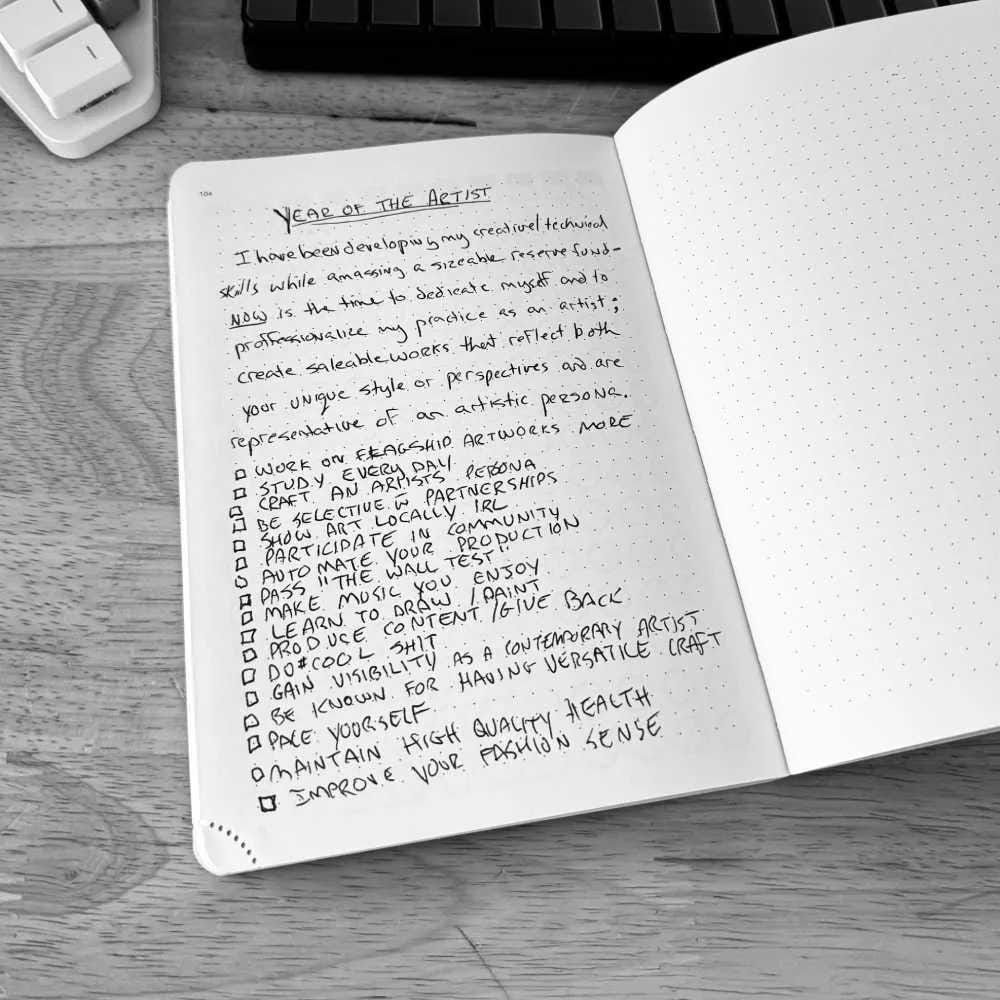 106
YEAR OF THE ARTIST
I have been developing my creative/technical
skills while amassing a sizeable reserve fund-
NOW is the time to dedicate myself and to
proffessionalize my practice as an artist;
create saleable works that reflect both
your unique style or perspectives and are
representative of an artistic persona.
WORK ON FLAGSHIP ARTWORKS MORE
STUDY EVERY DAY
CRAFT AN ARTISTS PERSONA
BE SELECTIVE W PARTNERSHIPS
SHOW ART LOCALLY IRL
PARTICIPATE IN COMMUNITY
AUTOMATE YOUR PRODUCTION
PASS "THE WALL TEST"
MAKE MUSIC YOU ENJOY
LEARN TO DRAW / PAINT
PRODUCE CONTENT / GIVE BACK
DO COOL SHIT
GAIN VISIBILITY AS A CONTEMPORARY ARTIST
BE KNOWN FOR HAVING VERSATILE CRAFT
PACE YOURSELF
MAINTAIN HIGH QUALITY HEALTH
IMPROVE YOUR FASHION SENSE